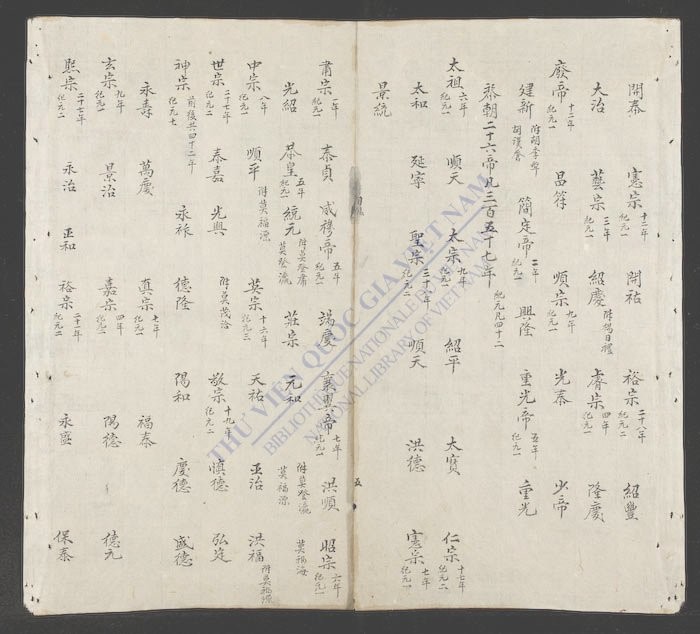 開泰 憲宗 十二年 紀元一 開祐 裕宗 二十八年 紀元二 紹豐
大治 藝宗 三年 紀元一 紹慶 附楊日禮 睿宗 四年 紀元一 隆慶
廢帝 十二年 紀元一 昌符 順宗 九年 紀元一 光泰 少帝
建新 附胡季犛 胡漢蒼 簡定帝 二年 紀元一 興隆 重光帝 五年 紀元一 重光
黎朝二十六帝凡三百五十七年 紀元凡四十二
太祖 六年 紀元一 順天 太宗 九年 紀元二 紹平 太寶 仁宗 十七年 紀元二
太和 延寧 聖宗 三十八年 紀元二 順天 洪德 憲宗 七年 紀元一
景統
肅宗 一年 紀元一 泰貞 威穆帝 五年 紀元一 端慶 襄翼帝 七年 紀元一 洪順 昭宗 六年 紀元一
光紹 恭皇 五年 紀元一 統元 附莫登庸 莫登瀛 莊宗 元和 附莫登瀛 莫福源 莫福海
中宗 八年 紀元一 順平 附莫福源 英宗 十六年 紀元三 天祐 正治 洪福 附莫福源
世宗 二十七年 紀元二 嘉泰 光興 附莫茂洽 敬宗 十九年 紀元二 慎德 弘定
神宗 前後共四十二年 紀元七 永祚 德隆 陽和 慶德 盛德
永壽 萬慶 真宗 七年 紀元一 福泰
玄宗 九年 紀元一 景治 嘉宗 四年 紀元二 陽德 德元
熙宗 二十七年 紀元二 永治 正和 裕宗 二十一年 紀元二 永盛 保泰
五
THƯ VIỆN QUỐC GIA VIỆT NAM
BIBLIOTHÈQUE NATIONALE DU VIETNAM
NATIONAL LIBRARY OF VIETNAM